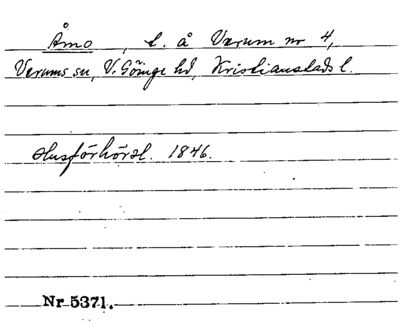 Åmo, l. å Verum nr 4,
Verums sn, V. Göinge hd, Kristianstads l.
Husförhörsl. 1846.
Nr 5371.